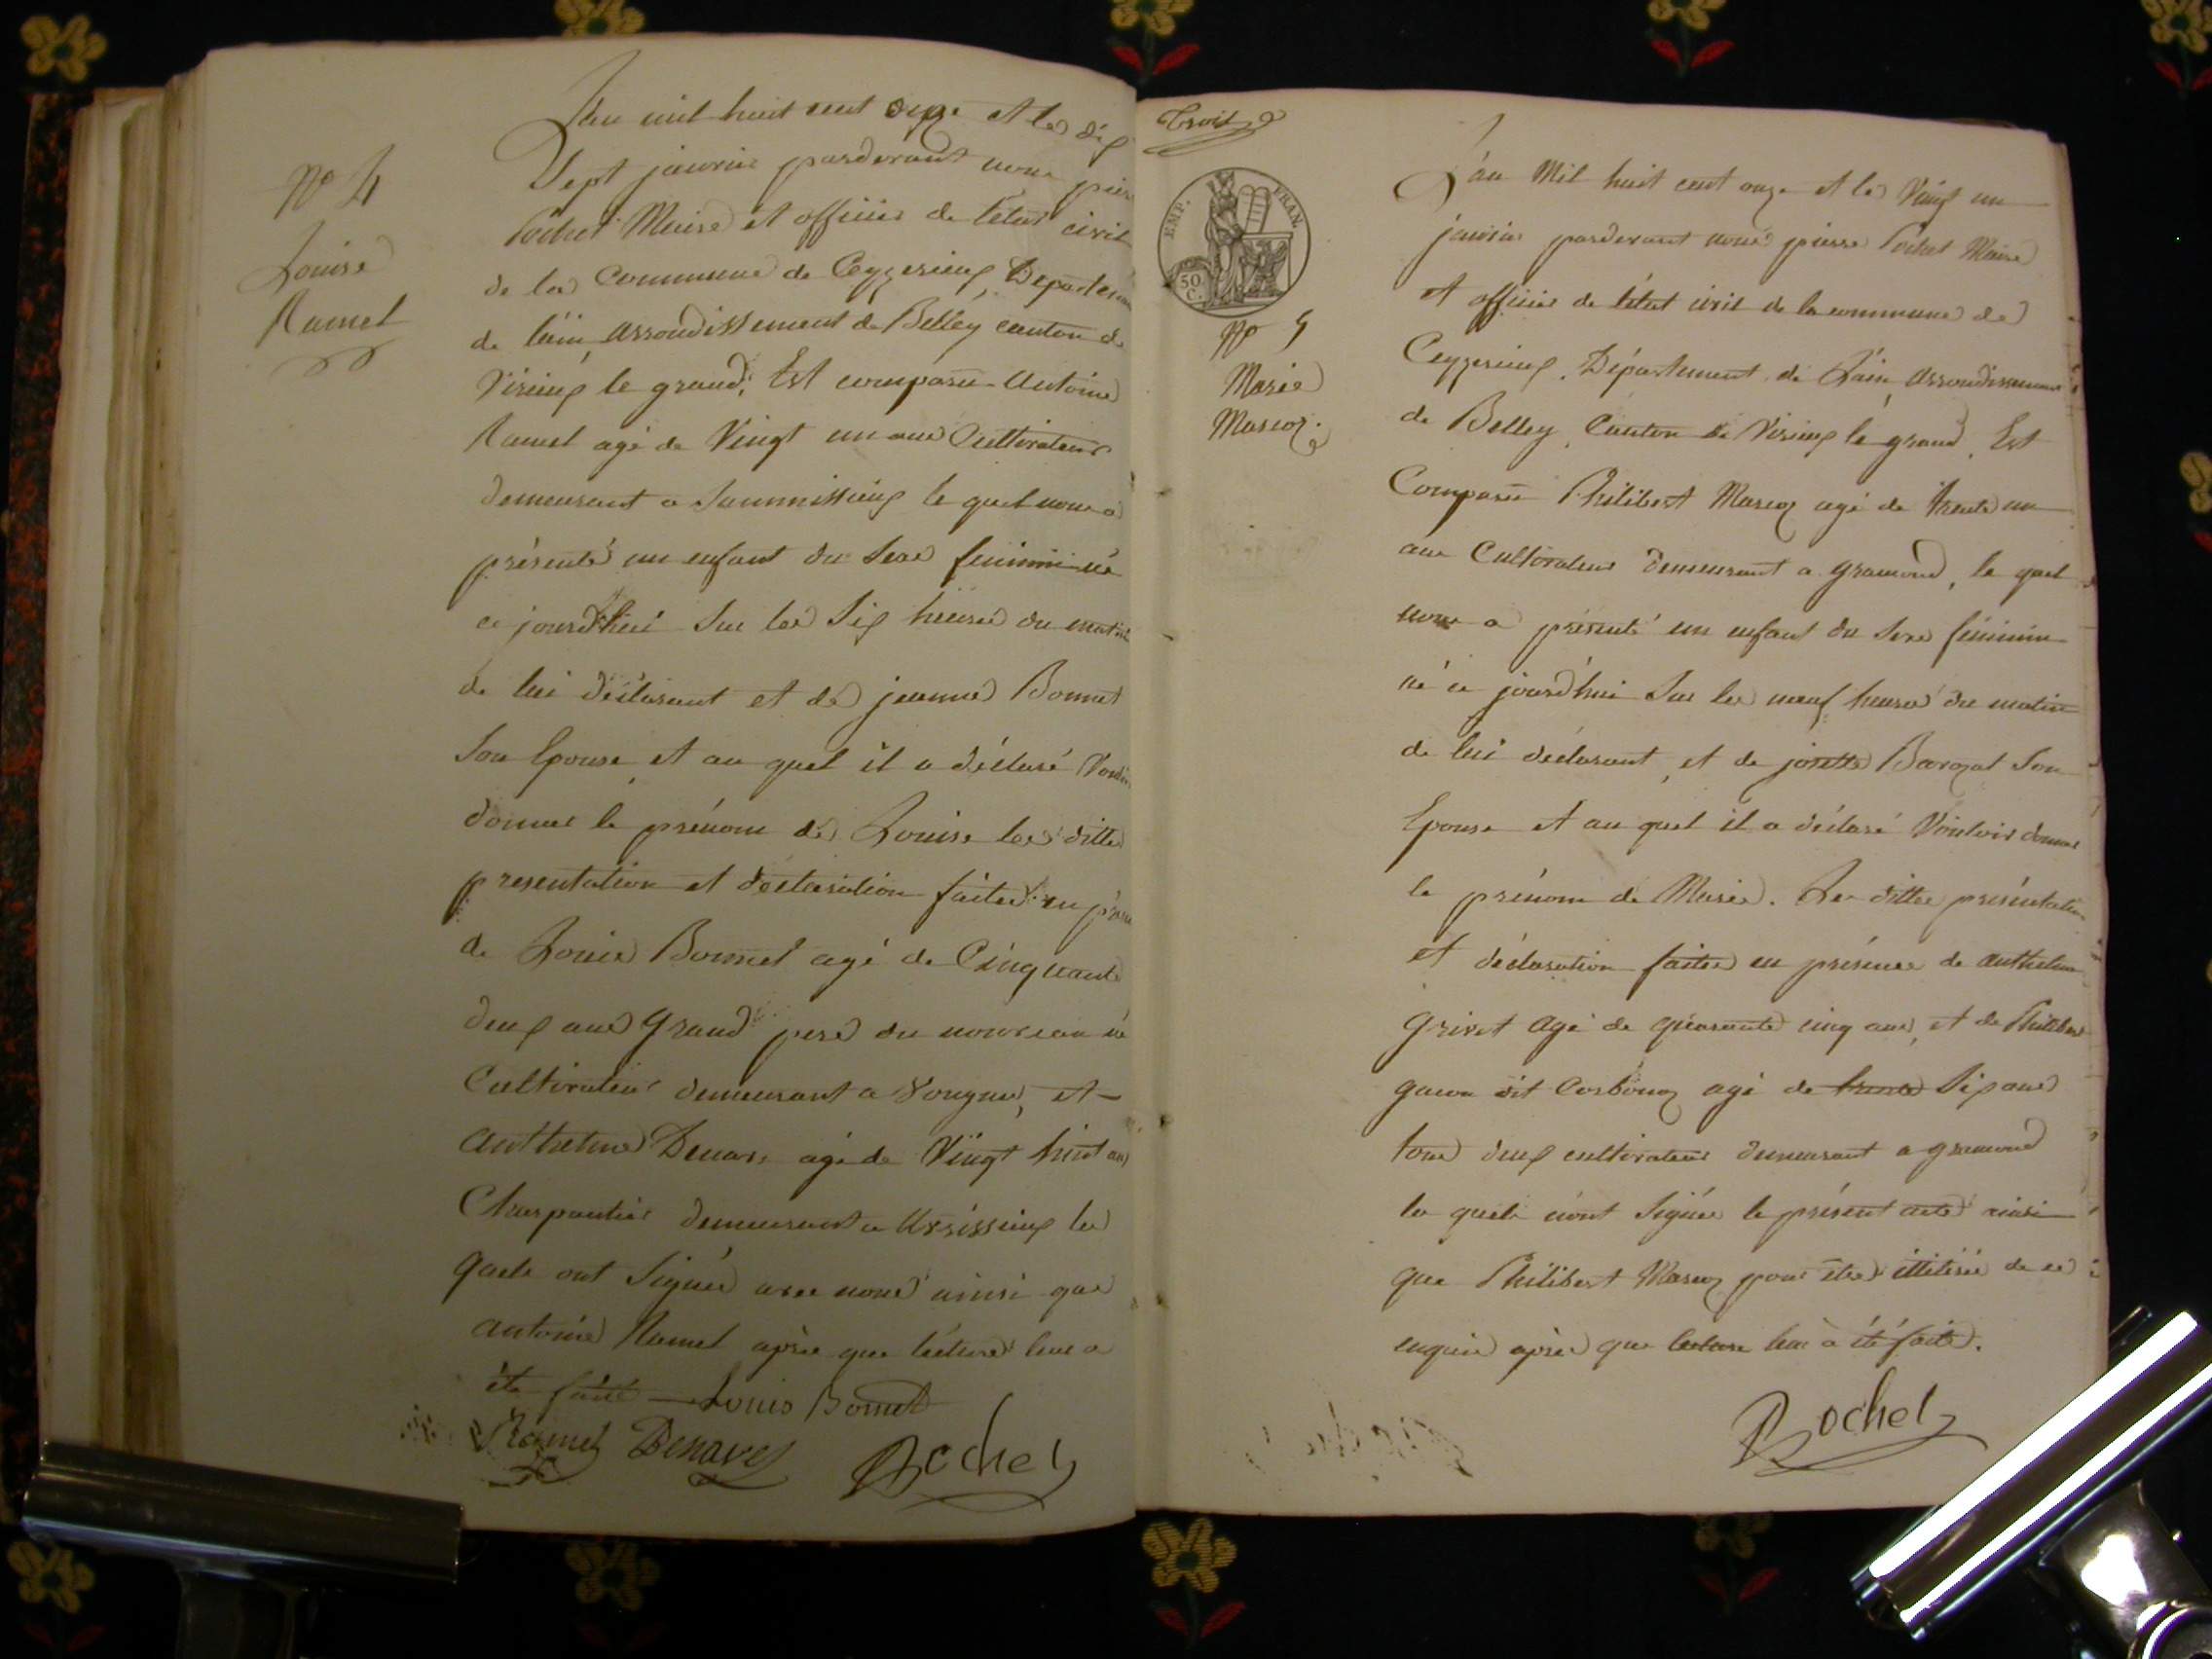 N° 4
Louise
Ramel
L'an mil huit cent onze et le dix
Sept janvier pardevant nous pierre
Rochet Maire et officier de l'état civil
de la Commune de Ceyzerieux, Departement
de l'ain, arrondissement de Belley canton de
Virieux le grand, Est comparu Antoine
Ramel agé de Vingt un ans Cultivateur
demeurant a le quel nous a
présenté un enfant du Sexe feminin né
ce jourd'hui Sur les Six heures du matin
de lui déclarant et de jeanne Bonnet
Son Epouse, et au quel il a déclaré Vouloir
donner le prénom de Louise les dittes
presentation et déclaration faites en présence
de Louis Bonnet agé de Cinquante
deux ans Grand pere du nouveau né
Cultivateur demeurant a Vongne, et
anthelme agé de Vingt huit ans
Charpentier demeurant a les
quels ont Signés avec nous ainsi que
antoine Ramel après que lécture leur a
été faite Louis Bonnet
Ramel Rochet
Trois
EMP. FRAN.
50 C.
N° 5
Marie
Mascoz.
L'an Mil huit cent onze et le Vingt un
janvier pardevant nous pierre Rochet Maire
et officier de l'état civil de la commune de
Ceyzerieux, Département de L'ain, arrondissement
de Belley, Canton de Virieux le grand, Est
Comparu Philibert Mascoz agé de trente un
ans Cultivateur demeurant a gramond, le quel
nous a présenté un enfant du Sexe féminin
né ce jourd'hui Sur les neuf heures du matin
de lui déclarant, et de josette Son
Epouse et au quel il a déclaré Vouloir donner
le prénom de Marie. Les dittes présentation
et déclaration faites en présence de anthelme
Grivet agé de quarante cinq ans, et de Philibert
dit agé de trente Six ans
tous deux cultivateurs demeurant a gramond
les quels n'ont Signés le présent acte ainsi
que Philibert Mascoz pour être illitérés de ce
enquis après que lecture leur a été faite.
Rochet